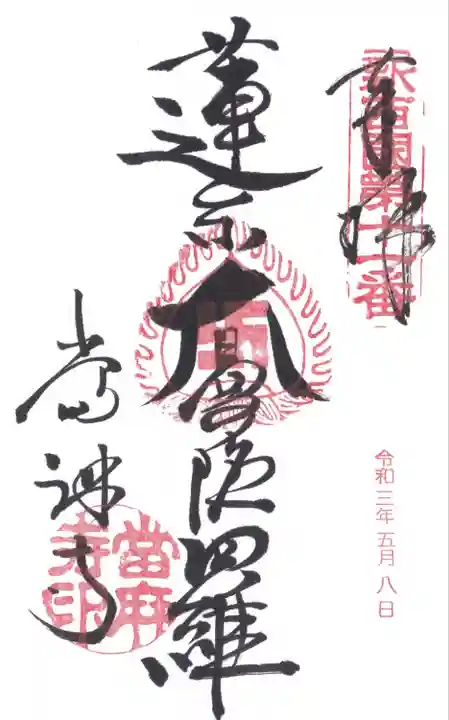 奉拝
新西國第十一番
令和三年五月八日
蓮糸大曼陀羅
當麻寺
當麻寺印